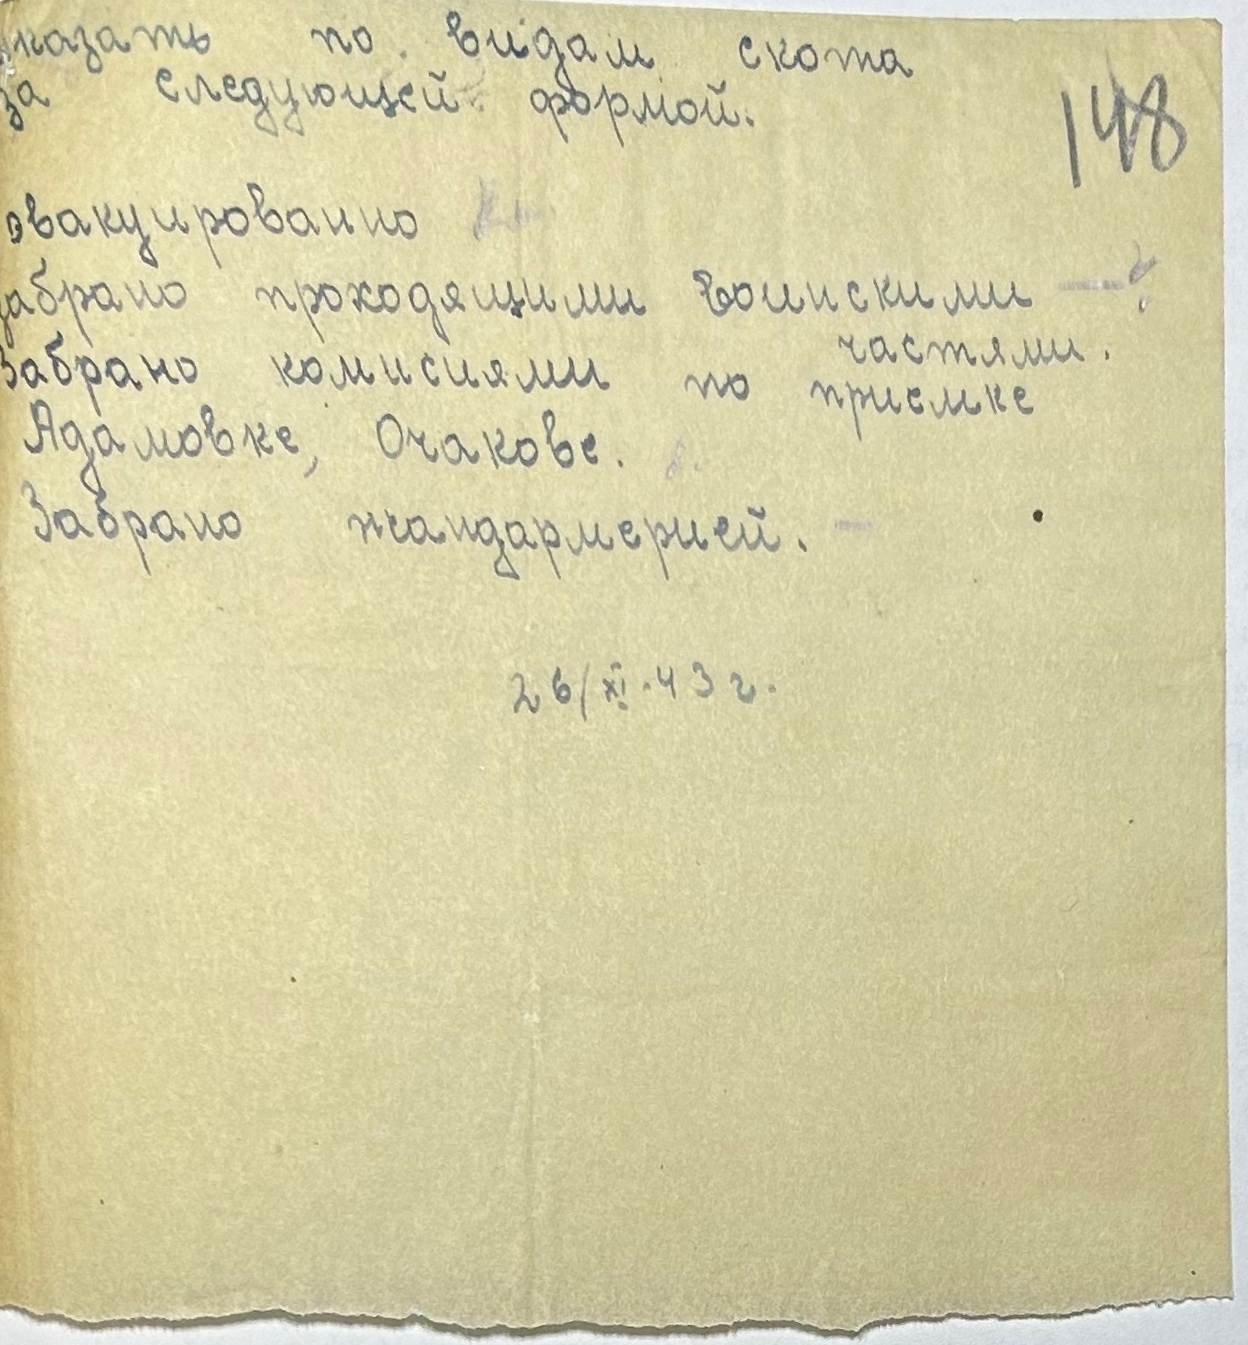 казать по видам скота
за следующей формой.
148
эвакуированно
забрано проходящими воинскими — ?
частями.
Забрано комисиями по приемке
Адамовке, Очакове.
Забрано жандармерией. —
26/XI.43 г.